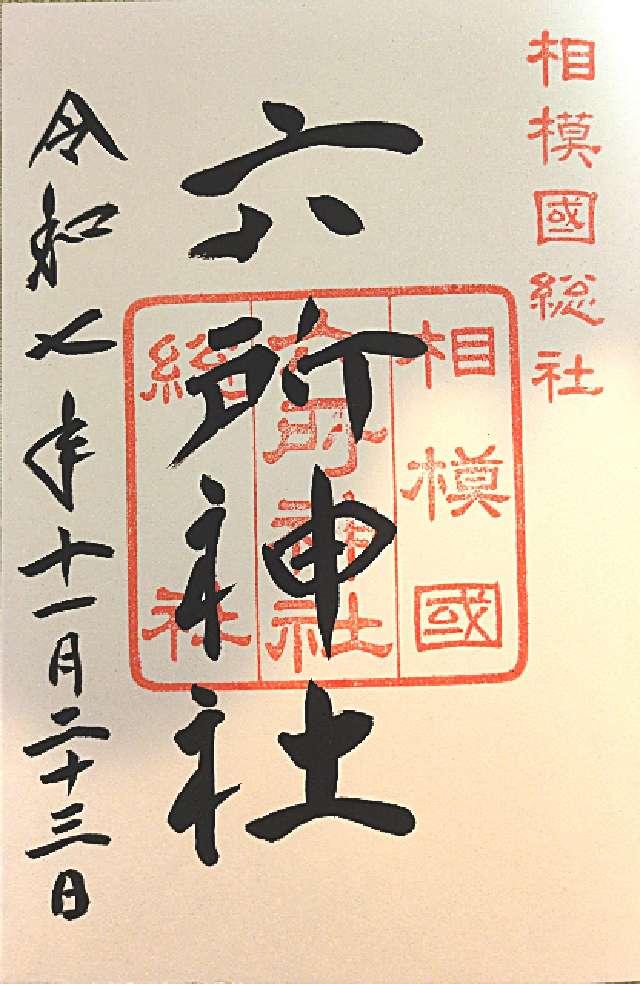 相模國総社
六所神社
相模國
六所神社
総社
令和七年十一月二十三日